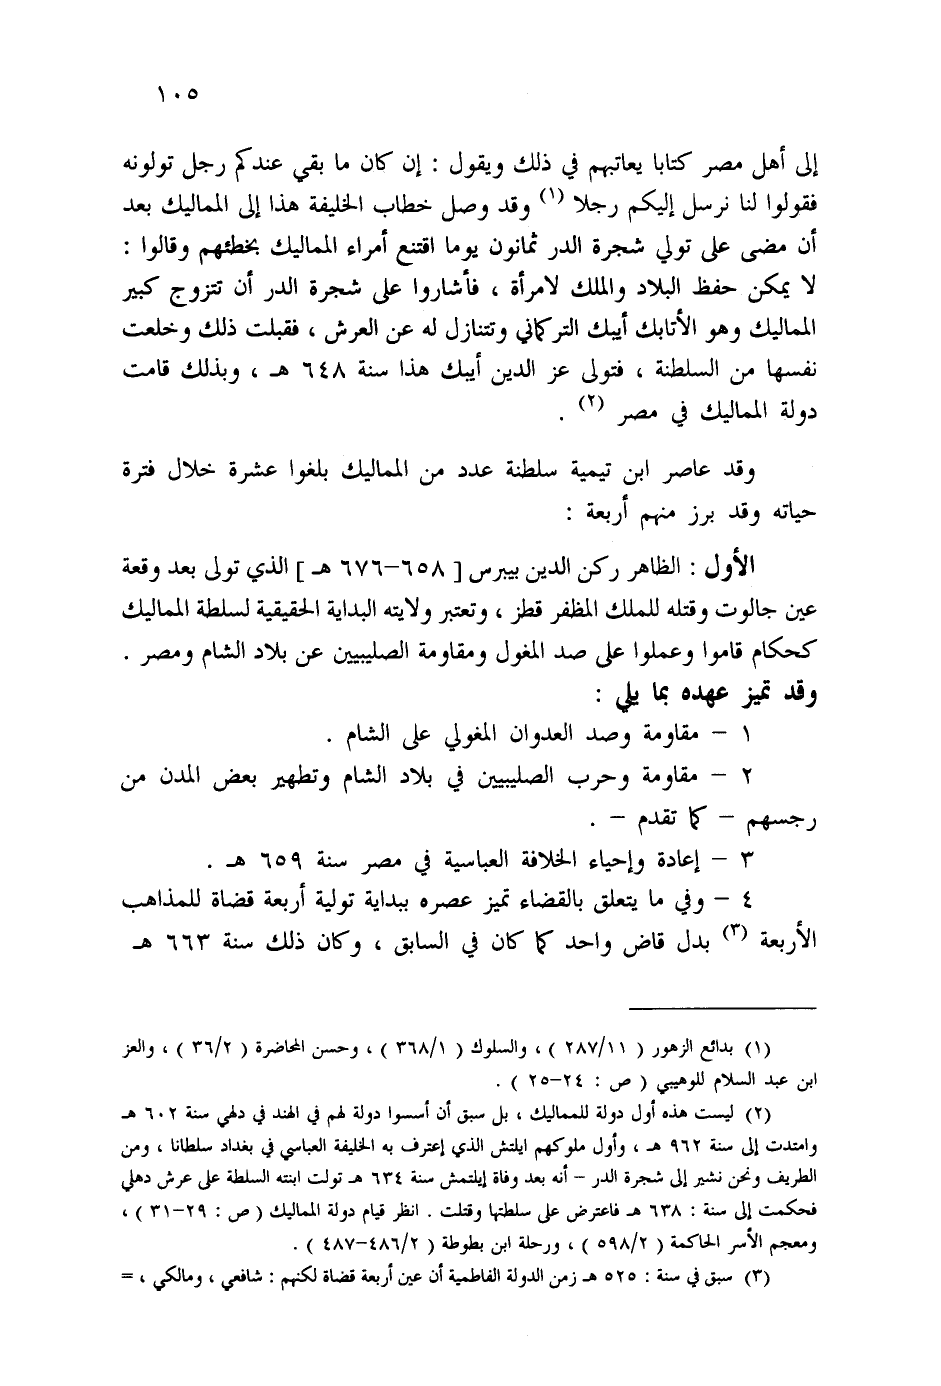 ١٠٥
إلى أهل مصر كتابا يعاتبهم في ذلك ويقول : إن كان ما بقي عندكم رجل تولونه
فقولوا لنا نرسل إليكم رجلا (١) وقد وصل خطاب الخليفة هذا إلى المماليك بعد
أن مضى على تولي شجرة الدر ثمانون يوما اقتنع أمراء المماليك بخطئهم وقالوا :
لا يمكن حفظ البلاد والملك لامرأة ، فأشاروا على شجرة الدر أن تتزوج كبير
المماليك وهو الأتابك أيبك التركماني وتتنازل له عن العرش ، فقبلت ذلك وخلعت
نفسها من السلطنة ، فتولى عز الدين أيبك هذا سنة ٦٤٨ هـ ، وبذلك قامت
دولة المماليك في مصر (٢) .
وقد عاصر ابن تيمية سلطنة عدد من المماليك بلغوا عشرة خلال فترة
حياته وقد برز منهم أربعة :
الأول : الظاهر ركن الدين بيبرس [ ٦٥٨-٦٧٦ هـ ] الذي تولى بعد وقعة
عين جالوت وقتله للملك المظفر قطز ، وتعتبر ولايته البداية الحقيقية لسلطة المماليك
كحكام قاموا وعملوا على صد المغول ومقاومة الصليبيين عن بلاد الشام ومصر .
وقد تميز عهده بما يلي :
١ - مقاومة وصد العدوان المغولي على الشام .
٢ - مقاومة وحرب الصليبيين في بلاد الشام وتطهير بعض المدن من
رجسهم - كما تقدم - .
٣ - إعادة وإحياء الخلافة العباسية في مصر سنة ٦٥٩ هـ .
٤ - وفي ما يتعلق بالقضاء تميز عصره ببداية تولية أربعة قضاة للمذاهب
الأربعة (٣) بدل قاض واحد كما كان في السابق ، وكان ذلك سنة ٦٦٣ هـ
(١) بدائع الزهور ( ٢٨٧/١١ ) ، والسلوك ( ٣٦٨/١ ) ، وحسن المحاضرة ( ٣٦/٢ ) ، والعز
ابن عبد السلام للوهيبي ( ص : ٢٤-٢٥ ) .
(٢) ليست هذه أول دولة للمماليك ، بل سبق أن أسسوا دولة لهم في الهند في دلهي سنة ٦٠٢ هـ
وامتدت إلى سنة ٩٦٢ هـ ، وأول ملوكهم ايلتش الذي إعترف به الخليفة العباسي في بغداد سلطانا ، ومن
الطريف ونحن نشير إلى شجرة الدر - أنه بعد وفاة إيلتمش سنة ٦٣٤ هـ تولت ابنته السلطة على عرش دهلي
فحكمت إلى سنة : ٦٣٨ هـ فاعترض على سلطتها وقتلت . انظر قيام دولة المماليك ( ص : ٢٩-٣١ ) ،
ومعجم الأسر الحاكمة ( ٥٩٨/٢ ) ، ورحلة ابن بطوطة ( ٤٨٦/٢-٤٨٧ ) .
(٣) سبق في سنة : ٥٢٥ هـ زمن الدولة الفاطمية أن عين أربعة قضاة لكنهم : شافعي ، ومالكي ، =